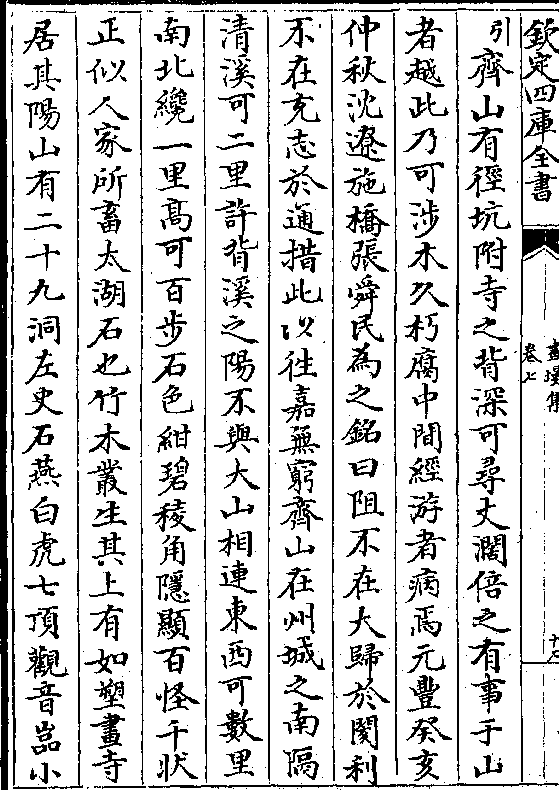 欽定四庫全書
畫墁集
卷七
十七
引齊山有徑坑附寺之背深可尋丈濶倍之有事于山
者越此乃可涉木久朽腐中間經游者病焉元豐癸亥
仲秋沈遼施橋張舜民為之銘曰阻不在大歸於閡利
不在充志於通措此以往嘉無窮齊山在州城之南隔
清溪可二里許背溪之陽不與大山相連東西可數里
南北纔一里髙可百步石色紺碧稜角隱顯百怪千狀
正似人家所畜太湖石也竹木叢生其上有如塑畫寺
居其陽山有二十九洞左史石燕白虎七頂觀音嵓小